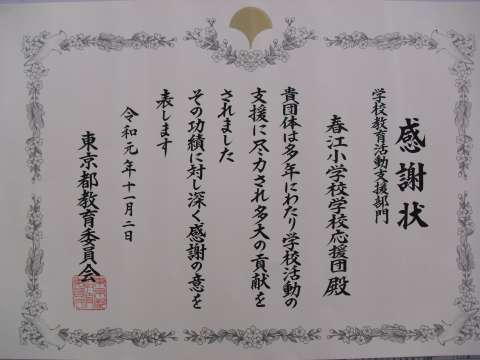 感謝状
学校教育活動支援部門
春江小学校学校応援団 殿
貴団体は多年にわたり学校活動の
支援に尽力され多大の貢献を
されました
その功績に対し深く感謝の意を
表します
令和元年十一月二日
東京都教育委員会